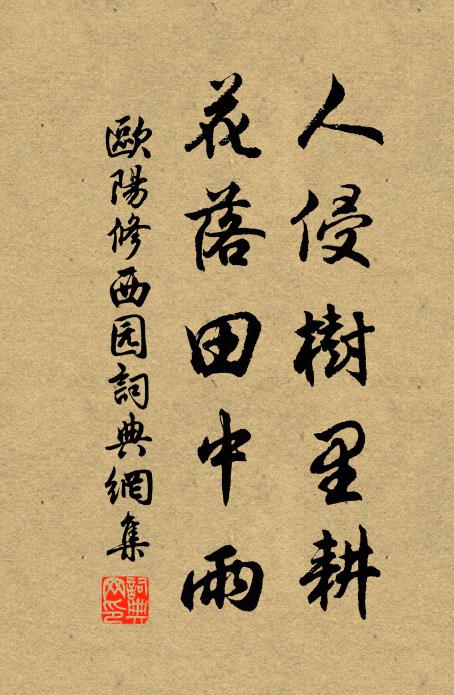 人侵樹里耕
花落田中雨
歐陽修西园詞典網集
詞典
网印